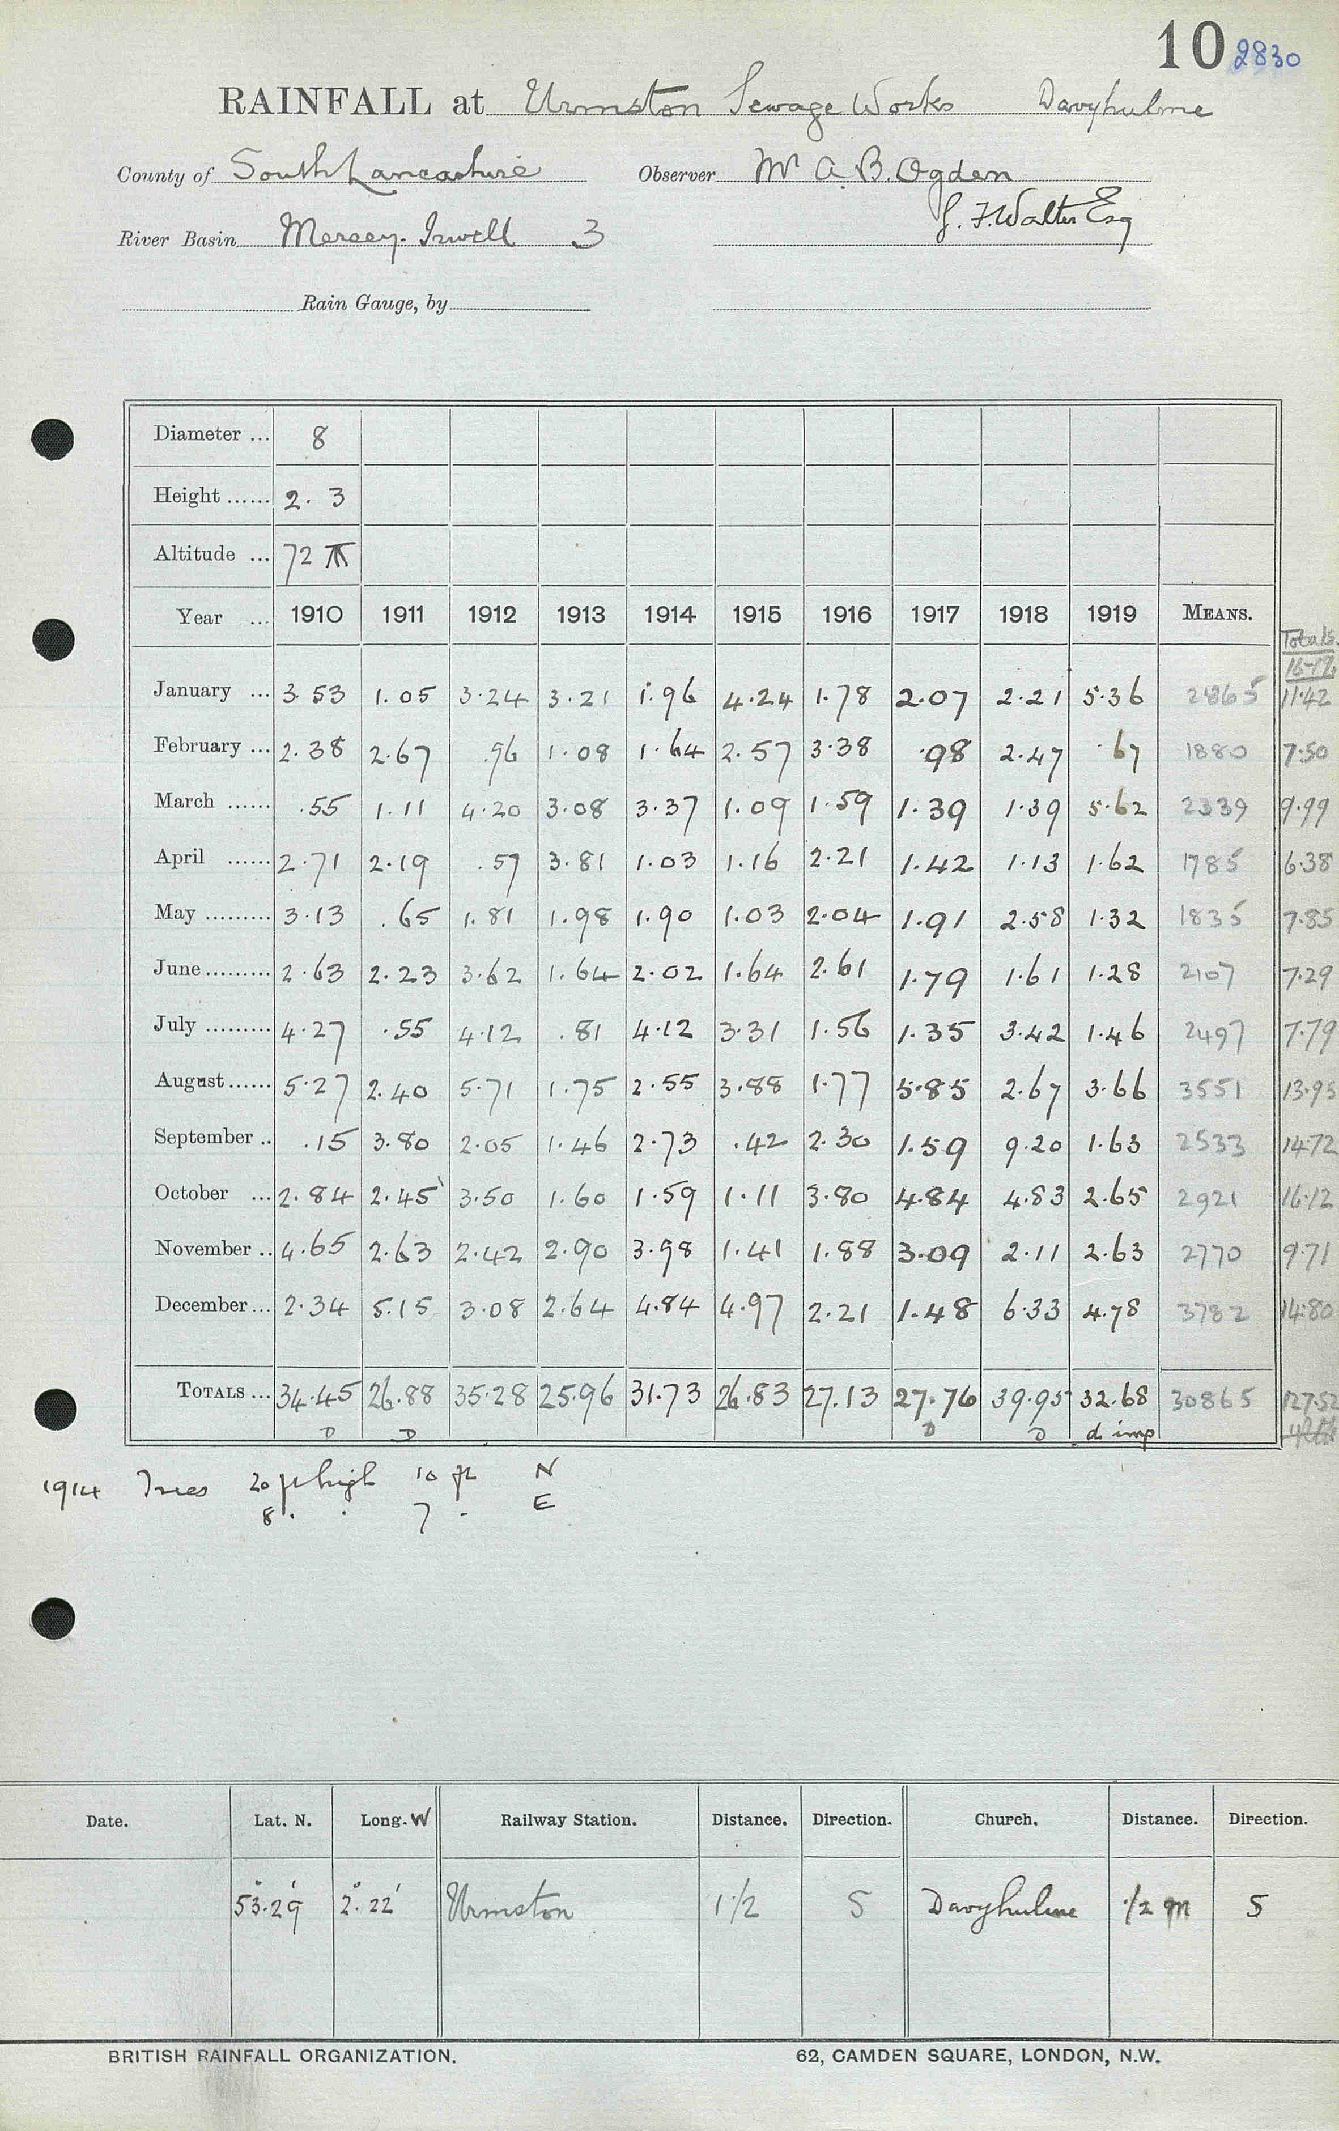 10 2830
RAINFALL at Urmston Sewage Works Davyhulme
County of South Lancashire Observer Mr A. B. Ogden
J. F. Walter Esq
River Basin Mersey. Irwell 3
Rain Gauge, by
Diameter ... 8
Height ...... 2. 3
Altitude ... 72
Year ... 1910 1911 1912 1913 1914 1915 1916 1917 1918 1919 MEANS. Totals 16-19
January ... 3.53 1.05 3.24 3.21 1.96 4.24 1.78 2.07 2.21 5.36 2865 11.42
February ... 2.38 2.67 .96 1.08 1.64 2.57 3.38 .98 2.47 .67 1880 7.50
March ...... .55 1.11 4.20 3.08 3.37 1.09 1.59 1.39 1.39 5.62 2339 9.99
April ...... 2.71 2.19 .57 3.81 1.03 1.16 2.21 1.42 1.13 1.62 1785 6.38
May ......... 3.13 .65 1.81 1.98 1.90 1.03 2.04 1.91 2.58 1.32 1835 7.85
June ......... 2.63 2.23 3.62 1.64 2.02 1.64 2.61 1.79 1.61 1.28 2107 7.29
July ......... 4.27 .55 4.12 .81 4.12 3.31 1.56 1.35 3.42 1.46 2497 7.79
August ...... 5.27 2.40 5.71 1.75 2.55 3.88 1.77 5.85 2.67 3.66 3551 13.95
September .. .15 3.80 2.05 1.46 2.73 .42 2.30 1.59 9.20 1.63 2533 14.72
October ... 2.84 2.45 3.50 1.60 1.59 1.11 3.80 4.84 4.83 2.65 2921 16.12
November .. 4.65 2.63 2.42 2.90 3.98 1.41 1.88 3.09 2.11 2.63 2770 9.71
December ... 2.34 5.15 3.08 2.64 4.84 4.97 2.21 1.48 6.33 4.78 3782 14.80
TOTALS ... 34.45 26.88 35.28 25.96 31.73 26.83 27.13 27.76 39.95 32.68 30865 127.52
D D D D d imp
1914 Trees 20 ft high 10 ft N
8 . . 7 . E
Date. Lat. N. Long. W Railway Station. Distance. Direction. Church. Distance. Direction.
53°.29' 2°.22' Urmston 1 1/2 S Davyhulme 1/2 m S
BRITISH RAINFALL ORGANIZATION. 62, CAMDEN SQUARE, LONDON, N.W.